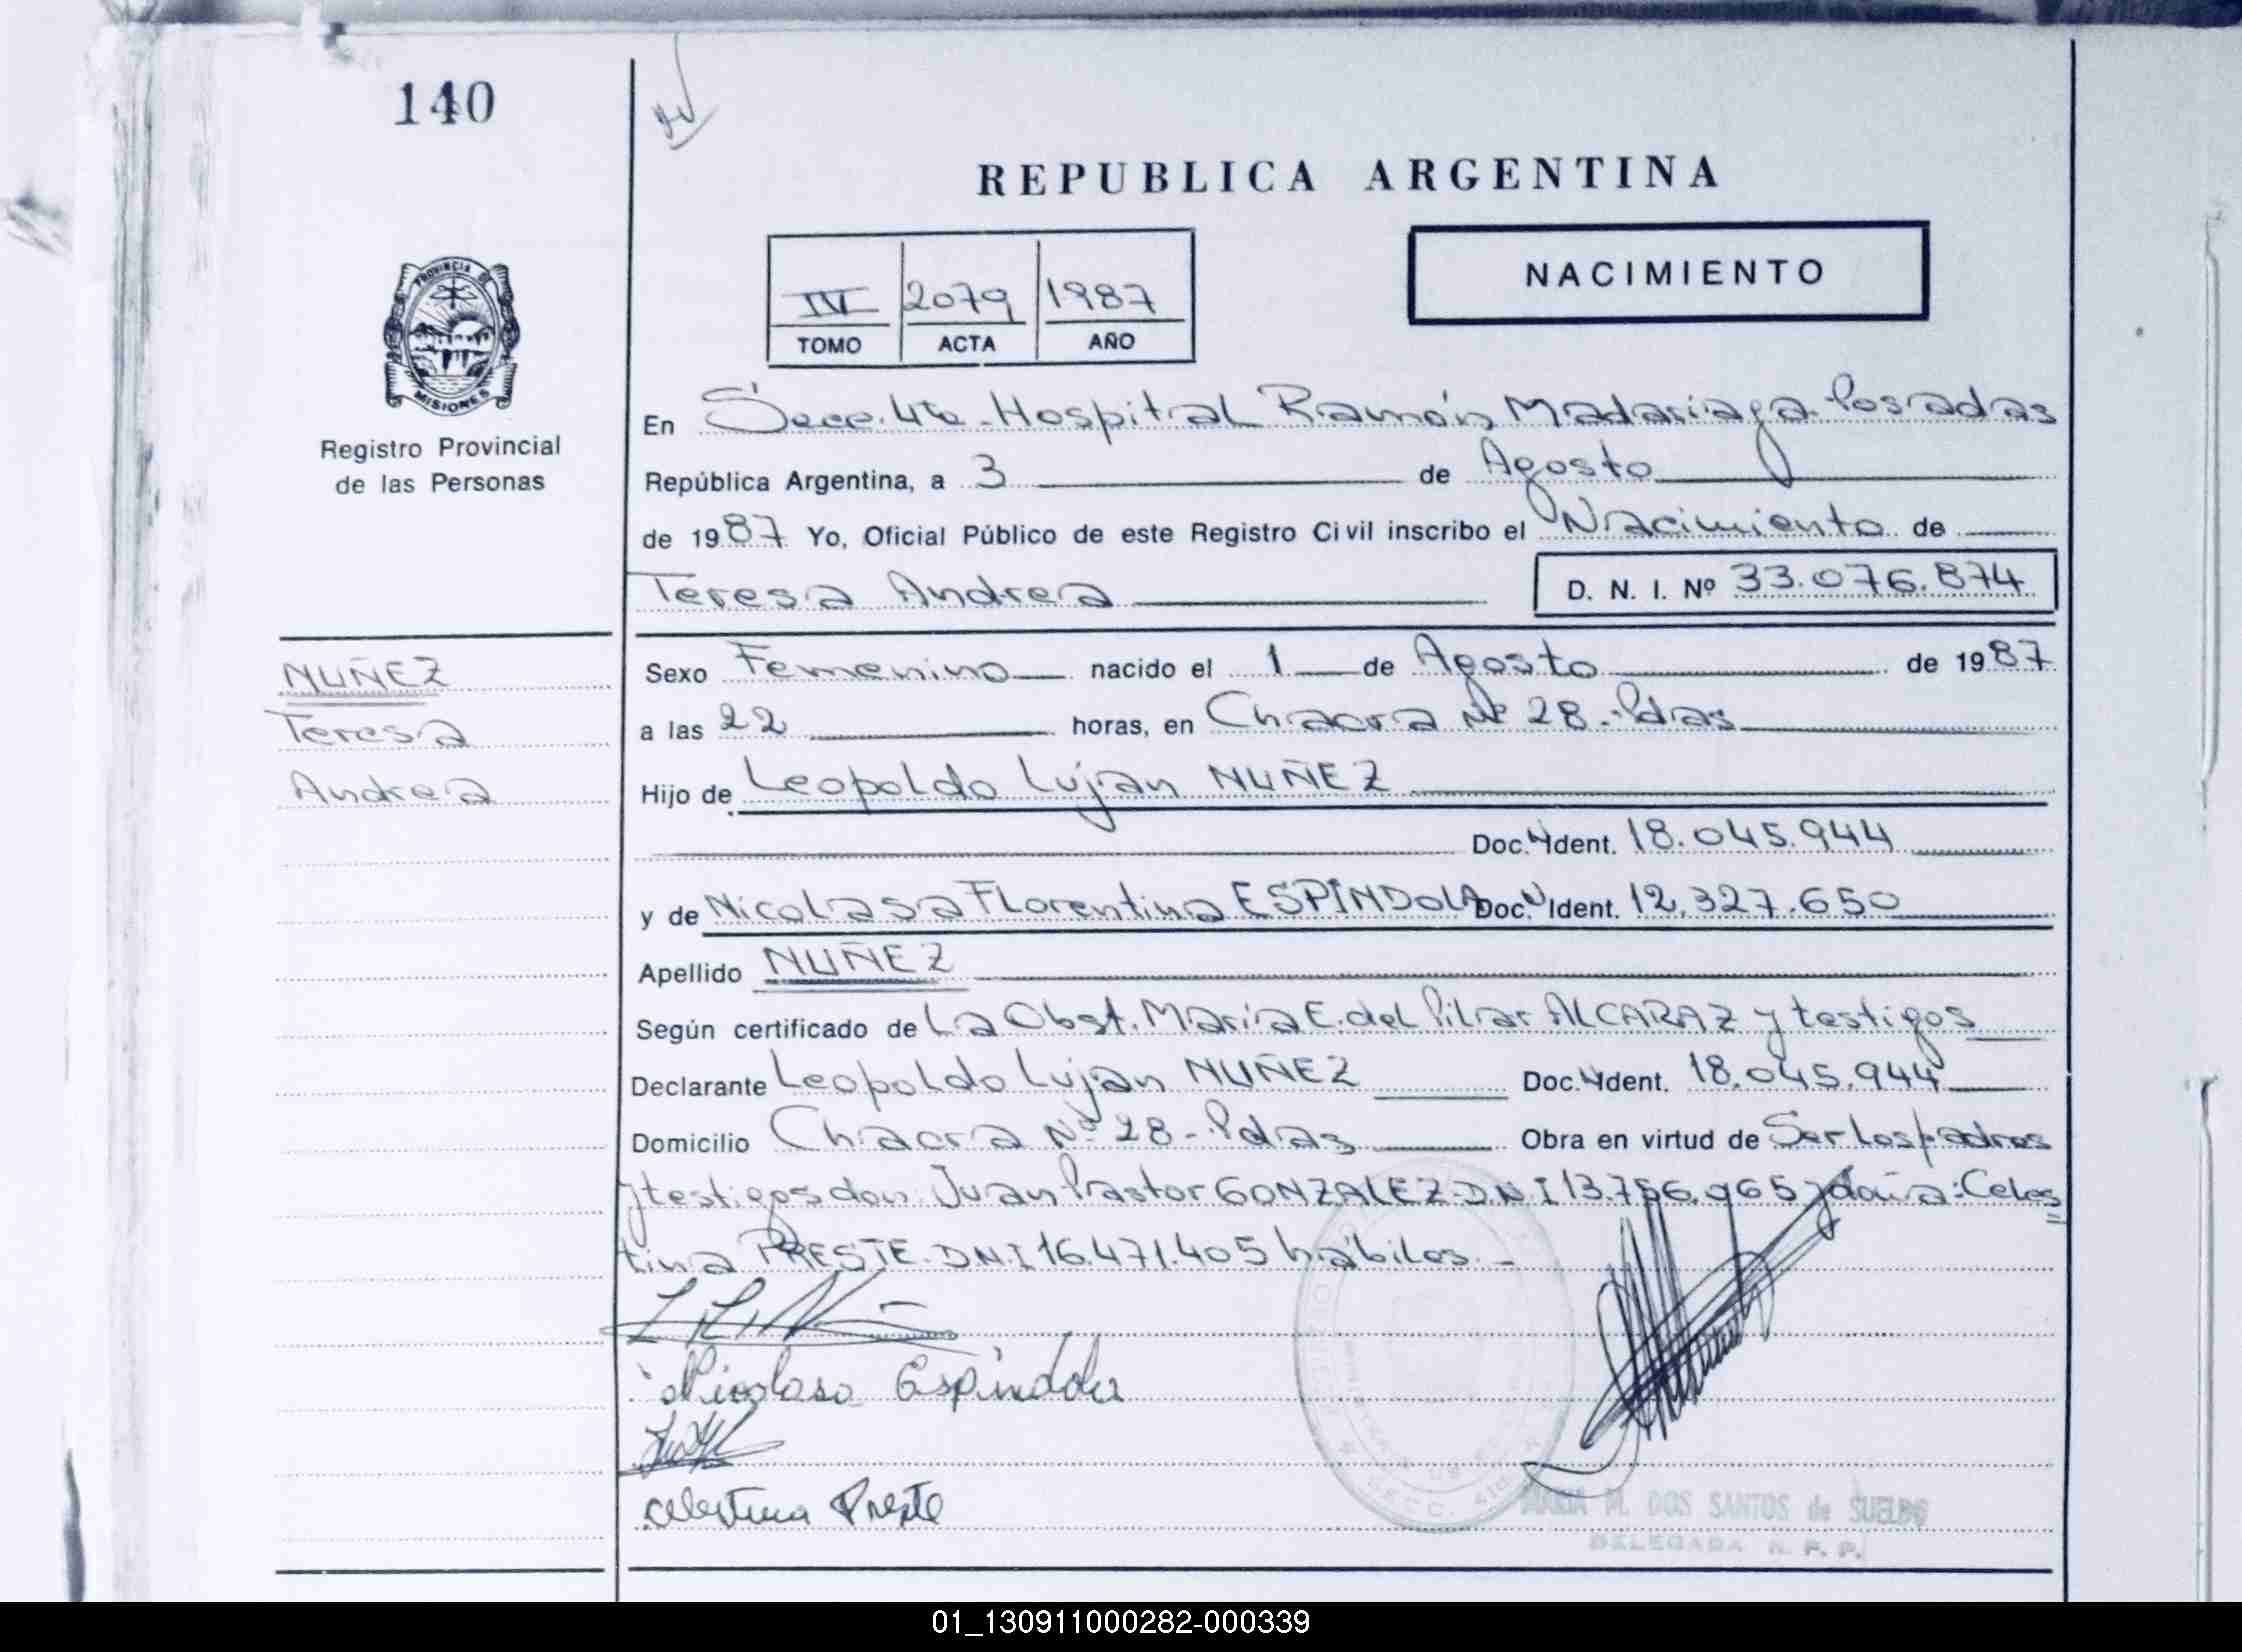 140
REPUBLICA ARGENTINA
IV 2079 1987
TOMO ACTA AÑO
NACIMIENTO
PROVINCIA DE
MISIONES
Registro Provincial
de las Personas
En Secc. 4ta - Hospital Ramón Madariaga - Posadas
República Argentina, a 3 de Agosto
de 1987 Yo, Oficial Público de este Registro Civil inscribo el Nacimiento de
Teresa Andrea D. N. I. Nº 33.076.874
NUÑEZ
Teresa
Andrea
Sexo Femenino nacido el 1 de Agosto de 1987
a las 22 horas, en Chacra Nº 28 - Pdas
Hijo de Leopoldo Luján NUÑEZ
Doc. Ident. 18.045.944
y de Nicolasa Florentina ESPÍNDOLA Doc. Ident. 12.327.650
Apellido NUÑEZ
Según certificado de La Obst. María E. del Pilar ALCARAZ y testigos
Declarante Leopoldo Luján NUÑEZ Doc. Ident. 18.045.944
Domicilio Chacra Nº 28 - Pdas Obra en virtud de Ser los padres
y testigos don: Juan Pastor GONZALEZ - D.N.I 13.756.965 y doña: Celes
tina PRESTE - D.N.I 16.471.405 hábiles. -
Nicolasa Espíndola
Celestina Preste
MARIA M. DOS SANTOS de SUELDO
DELEGADA R. P. P.
01_130911000282-000339